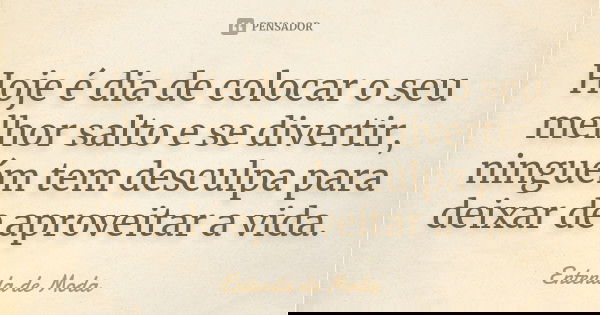 PENSADOR
Hoje é dia de colocar o seu
melhor salto e se divertir,
ninguém tem desculpa para
deixar de aproveitar a vida.
Entenda de Moda